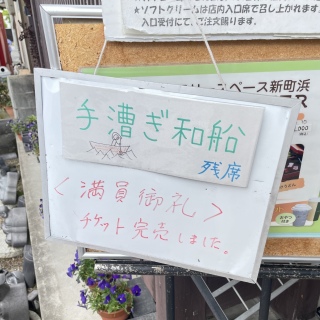 ★ソフトクリームは店内入口席で召し上がれます。
入口受付にて、ご注文賜ります。
ース新町浜
手漕ぎ和船
残席
<満員御礼>
チケット完売しました。